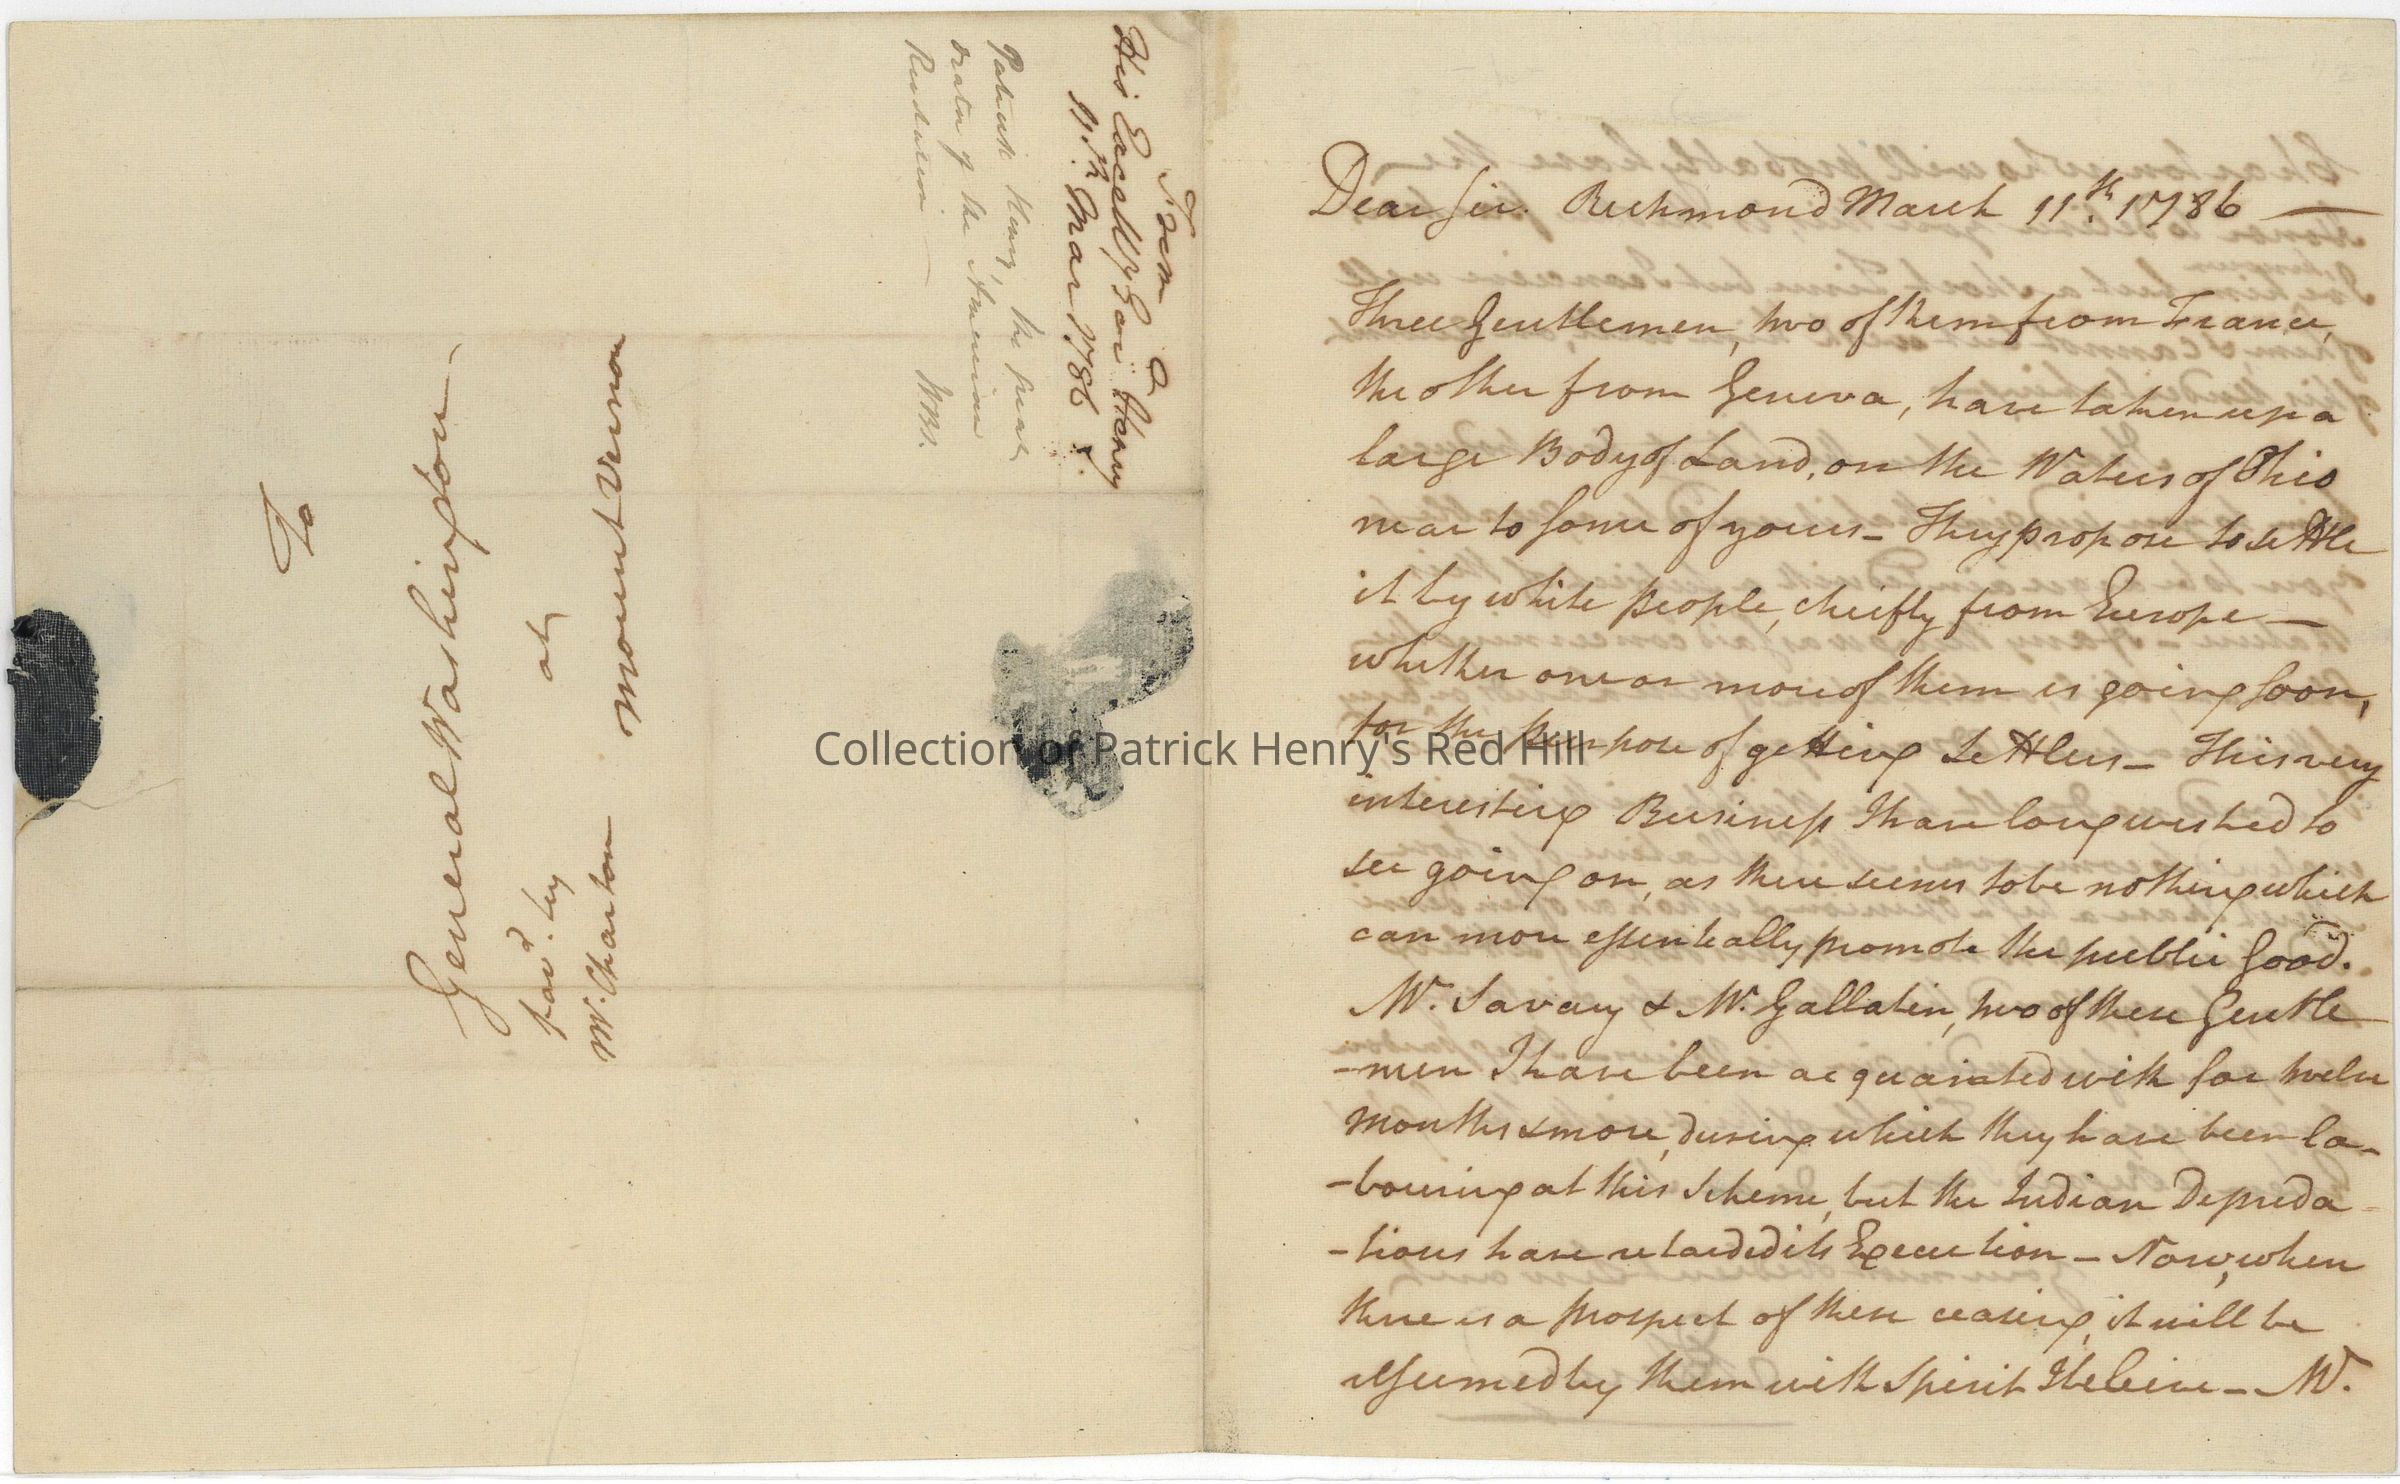 To
General Washington
at
mount Vernon
favd. by
Mr. Charton
From
His Excelly Gov. Henry
11th. Mar 1786
Patrick Henry, the great
orator of the American
Revolution
Collection of Patrick Henry's Red Hill
Dear Sir. Richmond March 11th. 1786
Three Gentlemen, two of them from France,
the other from Geneva, have taken up a
large Body of Land, on the Waters of Ohio
near to some of yours – They propose to settle
it by white people, chiefly from Europe –
whether one or more of them is going soon,
for the purpose of getting settlers – This very
interesting Business I have long wished to
see going on, as there seems to be nothing which
can more essentially promote the public Good.
Mr. Savary & Mr. Gallatin, two of these Gentle
-men I have been acquainted with for twelve
months & more, during which they have been la-
-bouring at this Scheme, but the Indian Depreda
-tions have retarded its Execution – Now, when
there is a prospect of these ceasing, it will be
resumed by them with Spirit I beleive – Mr.